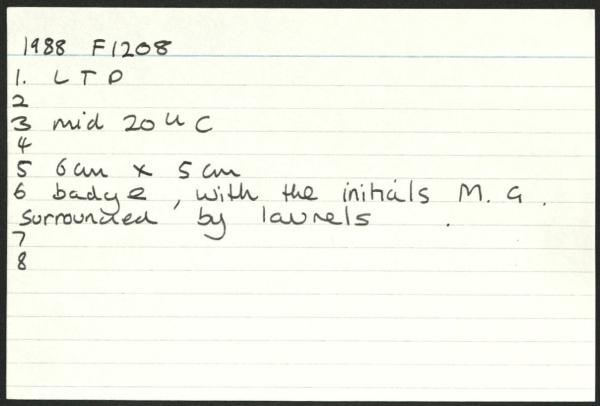 1988 F1208
1. L T D
2
3 mid 20th C
4
5 6cm x 5cm
6 badge, with the initials M. G.
surrounded by laurels .
7
8